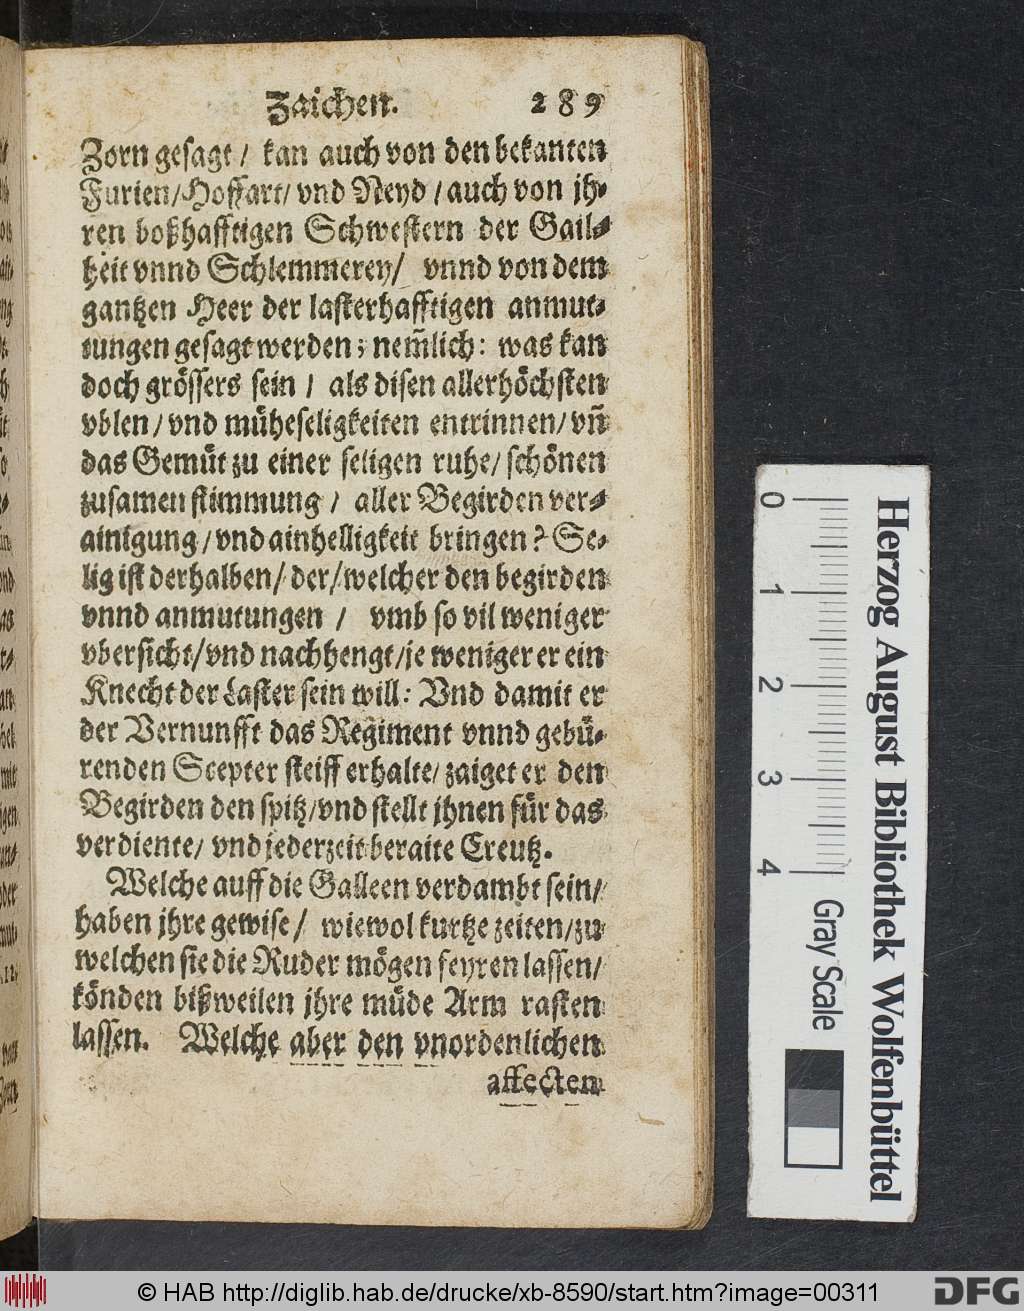 Zaichen. 289
Zorn gesagt / kan auch von den bekanten
Furien/Hoffart/ vnd Neyd / auch von jh-
ren boßhafftigen Schwestern der Gail-
heit vnnd Schlemmerey/ vnnd von dem
gantzen Heer der lasterhafftigen anmut-
tungen gesagt werden; nem̃lich: was kan
doch grössers sein / als disen allerhöchsten
vblen / vnd müheseligkeiten entrinnen/ vñ
das Gemüt zu einer seligen ruhe/ schönen
zusamenstimmung / aller Begirden ver-
ainigung / vnd ainhelligkeit bringen? Se-
lig ist derhalben/ der/ welcher den begirden
vnnd anmutungen / vmb so vil weniger
vbersicht/ vnd nachhengt/ je weniger er ein
Knecht der Laster sein will: Vnd damit er
der Vernunfft das Regiment vnnd gebü-
renden Scepter steiff erhalte/ zaiget er den
Begirden den spitz/ vnd stellt jhnen für das
verdiente/ vnd jederzeit beraite Creutz.
Welche auff die Galleen verdambt sein/
haben jhre gewise / wiewol kurtze zeiten/ zu
welchen sie die Ruder mögen feyren lassen/
könden bißweilen jhre müde Arm rasten
lassen. Welche aber den vnordenlichen
affecten
0 1 2 3 4
Herzog August Bibliothek Wolfenbüttel
Gray Scale
© HAB http://diglib.hab.de/drucke/xb-8590/start.htm?image=00311
DFG